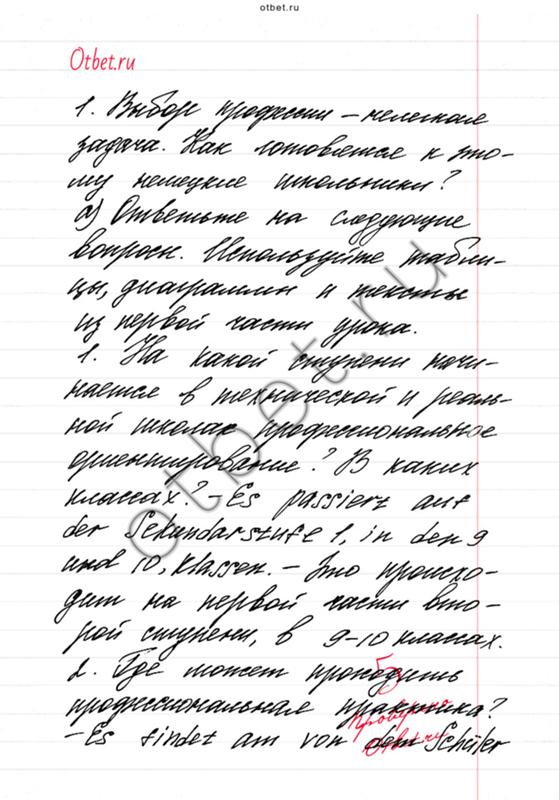 otbet.ru
Otbet.ru
1. Выбор профессии – нелегкая
задача. Как готовятся к это-
му немецкие школьники?
а) Ответьте на следующие
вопросы. Используйте табли-
цы, диаграммы и тексты
из первой части урока.
1. На какой ступени начи-
нается в технической и реаль-
ной школах профессиональное
ориентирование? В каких
классах? – Es passiert auf
der Sekundarstufe 1, in den 9
und 10, Klassen. – Это происхо-
дит на первой части вто-
рой ступени, в 9-10 классах.
2. Где может проходить
5
профессиональная практика?
Проверено
Otbet.ru
– Es findet am von dem Schüler
otbet.ru